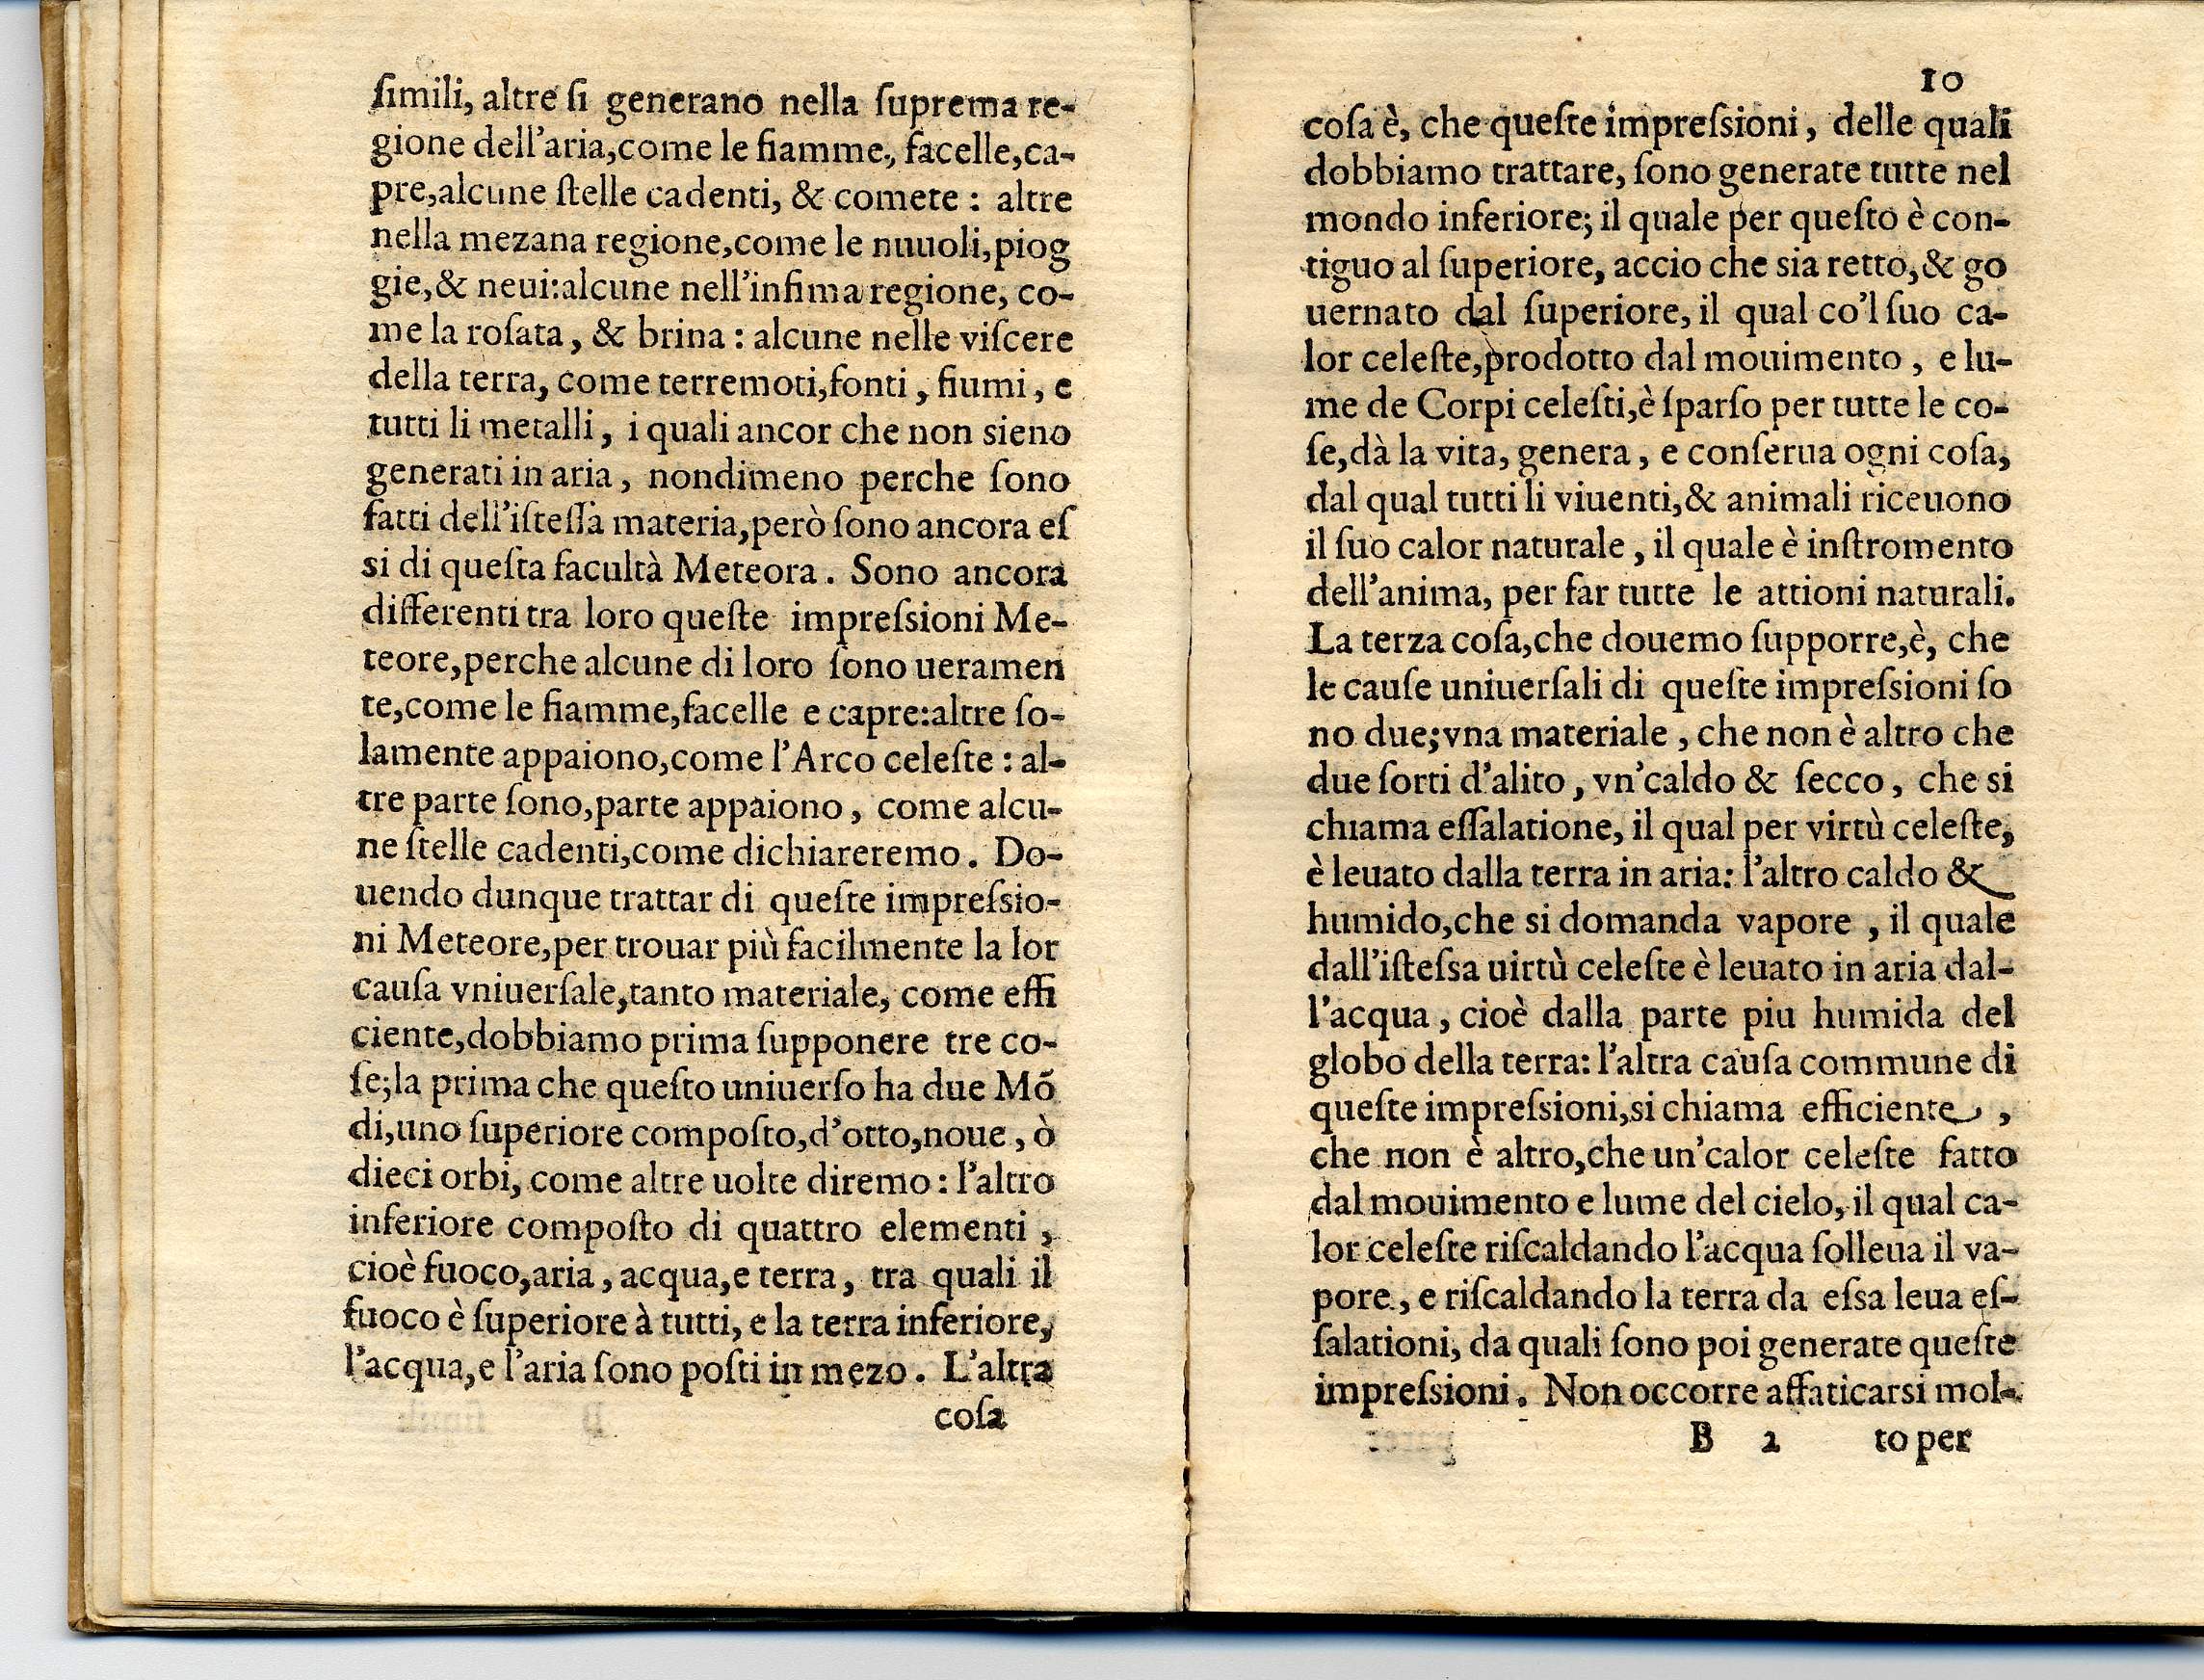 ſimili, altre ſi generano nella ſuprema re-
gione dell'aria,come le fiamme, facelle,ca-
pre,alcune ſtelle cadenti, & comete : altre
nella mezana regione,come le nuuoli,piog
gie,& neui:alcune nell'infima regione, co-
me la roſata, & brina : alcune nelle viſcere
della terra, come terremoti,fonti, fiumi, e
tutti li metalli, i quali ancor che non sieno
generati in aria, nondimeno perche ſono
fatti dell'iſteſſa materia,però ſono ancora eſ
si di queſta facultà Meteora. Sono ancora
differenti tra loro queſte impreſsioni Me-
teore,perche alcune di loro ſono ueramen
te,come le fiamme,facelle e capre:altre ſo-
lamente appaiono,come l'Arco celeſte : al-
tre parte ſono,parte appaiono, come alcu-
ne ſtelle cadenti,come dichiareremo. Do-
uendo dunque trattar di queſte impreſsio-
ni Meteore,per trouar più facilmente la lor
cauſa vniuerſale,tanto materiale, come effi
ciente,dobbiamo prima ſupponere tre co-
ſe;la prima che queſto uniuerſo ha due Mõ
di,uno ſuperiore compoſto,d'otto,noue, ò
dieci orbi, come altre uolte diremo : l'altro
inferiore compoſto di quattro elementi,
cioè fuoco,aria, acqua,e terra, tra quali il
fuoco è ſuperiore à tutti, e la terra inferiore,
l'acqua,e l'aria ſono poſti in mezo. L'altra
coſa
10
coſa è, che queſte impreſsioni, delle quali
dobbiamo trattare, ſono generate tutte nel
mondo inferiore; il quale per queſto è con-
tiguo al ſuperiore, accio che sia retto,& go
uernato dal ſuperiore, il qual co'l ſuo ca-
lor celeſte,prodotto dal mouimento, e lu-
me de Corpi celeſti,è ſparſo per tutte le co-
ſe,dà la vita, genera, e conſerua ogni coſa,
dal qual tutti li viuenti,& animali riceuono
il ſuo calor naturale, il quale è inſtromento
dell'anima, per far tutte le attioni naturali.
La terza coſa,che douemo ſupporre,è, che
le cauſe uniuerſali di queſte impreſsioni ſo
no due;vna materiale, che non è altro che
due ſorti d'alito, vn'caldo & ſecco, che si
chiama eſſalatione, il qual per virtù celeſte,
è leuato dalla terra in aria: l'altro caldo &
humido,che si domanda vapore, il quale
dall'iſteſsa uirtù celeſte è leuato in aria dal-
l'acqua, cioè dalla parte piu humida del
globo della terra: l'altra cauſa commune di
queſte impreſsioni,si chiama efficiente,
che non è altro,che un'calor celeſte fatto
dal mouimento e lume del cielo, il qual ca-
lor celeſte riſcaldando l'acqua ſolleua il va-
pore, e riſcaldando la terra da eſsa leua eſ-
ſalationi, da quali ſono poi generate queſte
impreſsioni. Non occorre affaticarsi mol-
B 2 to per